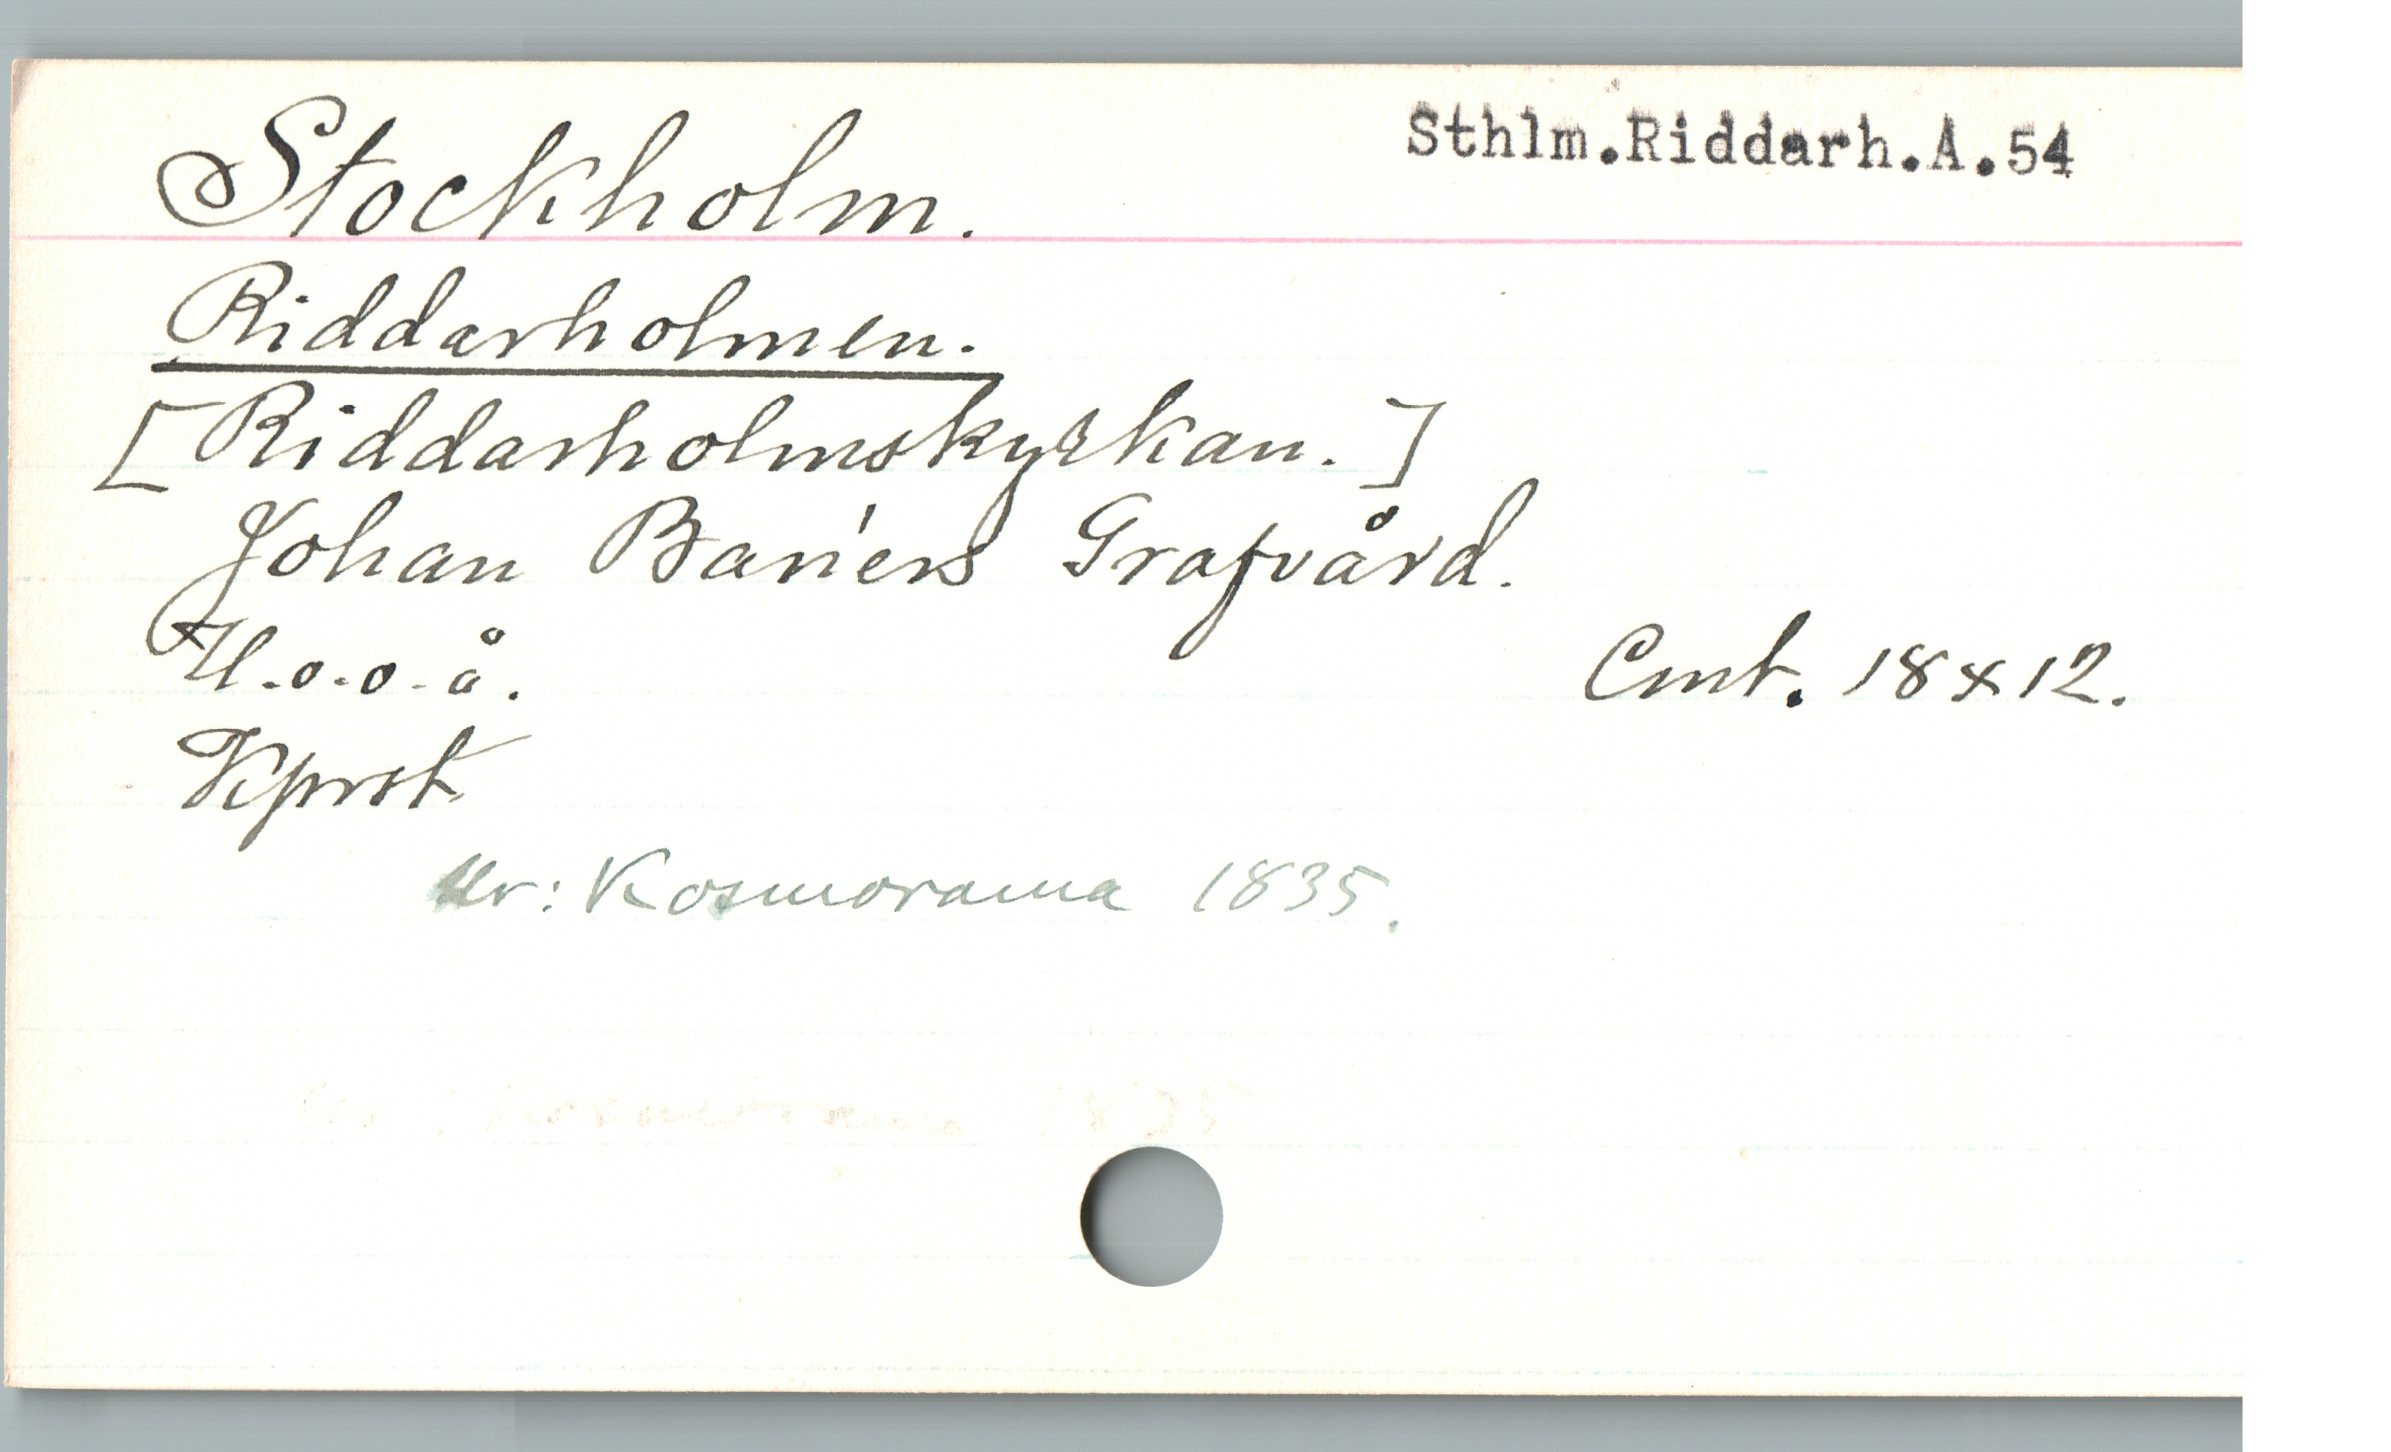 Stockholm.
Sthlm.Riddarh.A.54
Riddarholmen.
[Riddarholmskyrkan.]
Johan Banérs Grafvård.
U.o.o.å.
Cmt. 18x12.
Kprst
Ur: Kosmorama 1835.